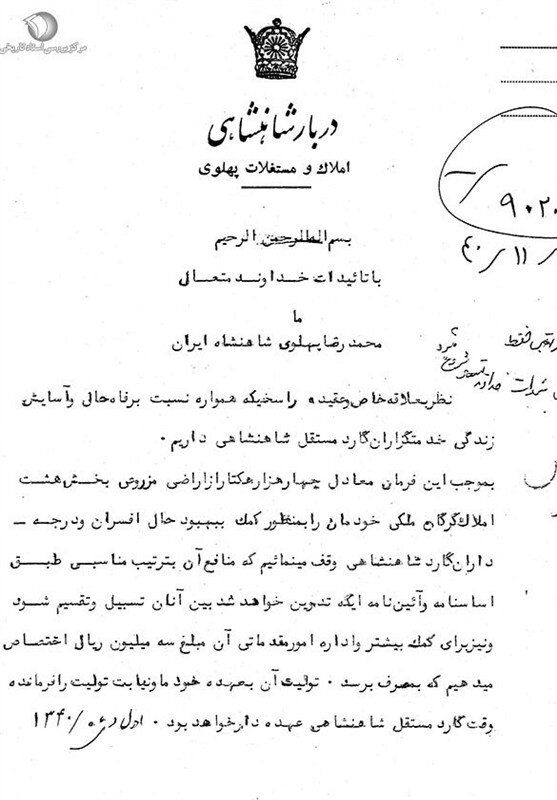 مرکز بررسی اسناد تاریخی
دربار شاهنشاهی
املاك و مستغلات پهلوی
۹۰۲
۴۰/۱۱/
بسم الله الرحمن الرحیم
با تائیدات خداوند متعال
ما
محمد رضا پهلوی شاهنشاه ایران
فقط
نظر بعلاقه خاص و عقیده راسخیکه همواره نسبت برفاه حال و آسایش
زندگی خدمتگزاران گارد مستقل شاهنشاهی داریم .
بموجب این فرمان معادل چهار هزار هکتار از اراضی مزروعی بخش هشت
املاك گرگان ملکی خودمان را بمنظور کمك ببهبود حال افسران و درجه ـ
داران گارد شاهنشاهی وقف مینمائیم که منافع آن بترتیب مناسبی طبق
اساسنامه و آئین نامه ایکه تدوین خواهد شد بین آنان تسبیل و تقسیم شود
و نیز برای کمك بیشتر و اداره امور مقدماتی آن مبلغ سه میلیون ریال اختصاص
میدهیم که بمصرف برسد . تولیت آن بعهده خود ما و نیابت تولیت را فرمانده
وقت گارد مستقل شاهنشاهی عهده دار خواهد بود . اول دیماه ۱۳۴۰